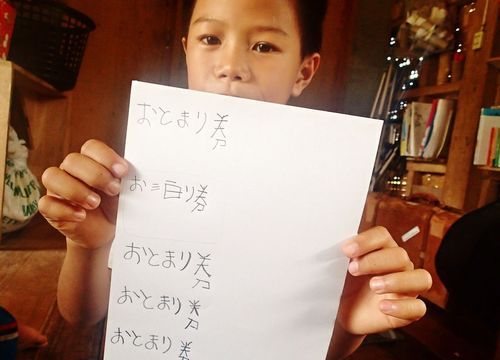 おとまり券
お三白り券
おとまり券
おとまり券
おとまり券